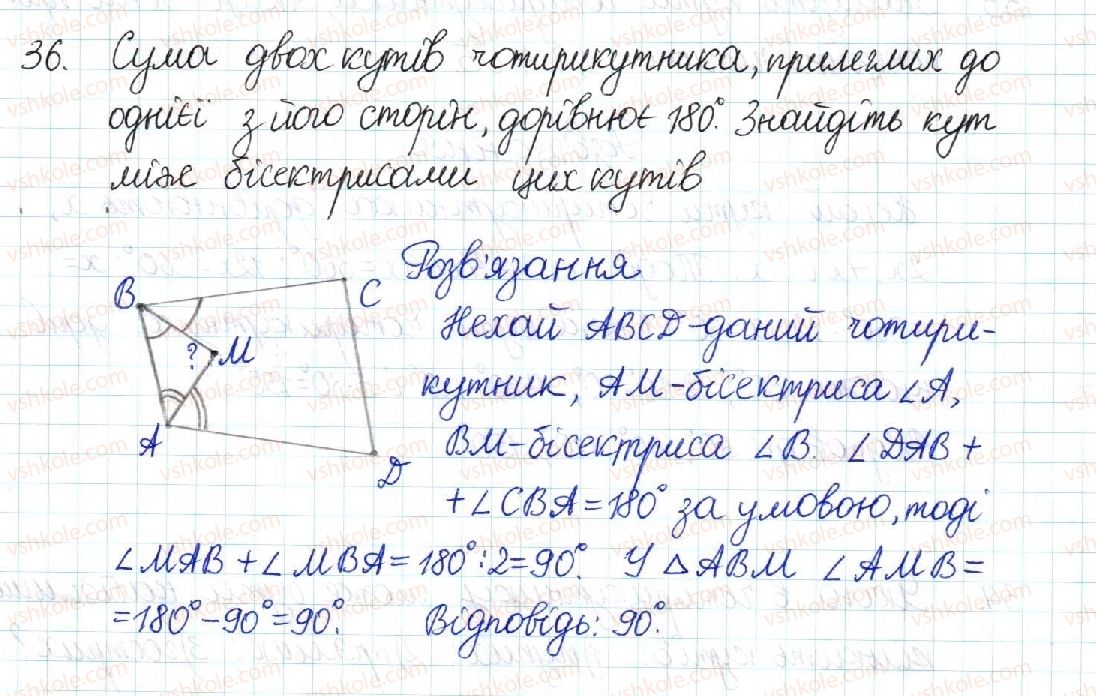 36. Сума двох кутів чотирикутника, прилеглих до
однієї з його сторін, дорівнює 180°. Знайдіть кут
між бісектрисами цих кутів
Розв'язання
B
C
?
M
A
D
Нехай ABCD-даний чотири-
кутник, AM-бісектриса ∠A,
BM-бісектриса ∠B. ∠DAB +
+∠CBA=180° за умовою, тоді
∠MAB +∠MBA=180°:2=90°. У △ABM ∠AMB=
=180°-90°=90°. Відповідь: 90°.